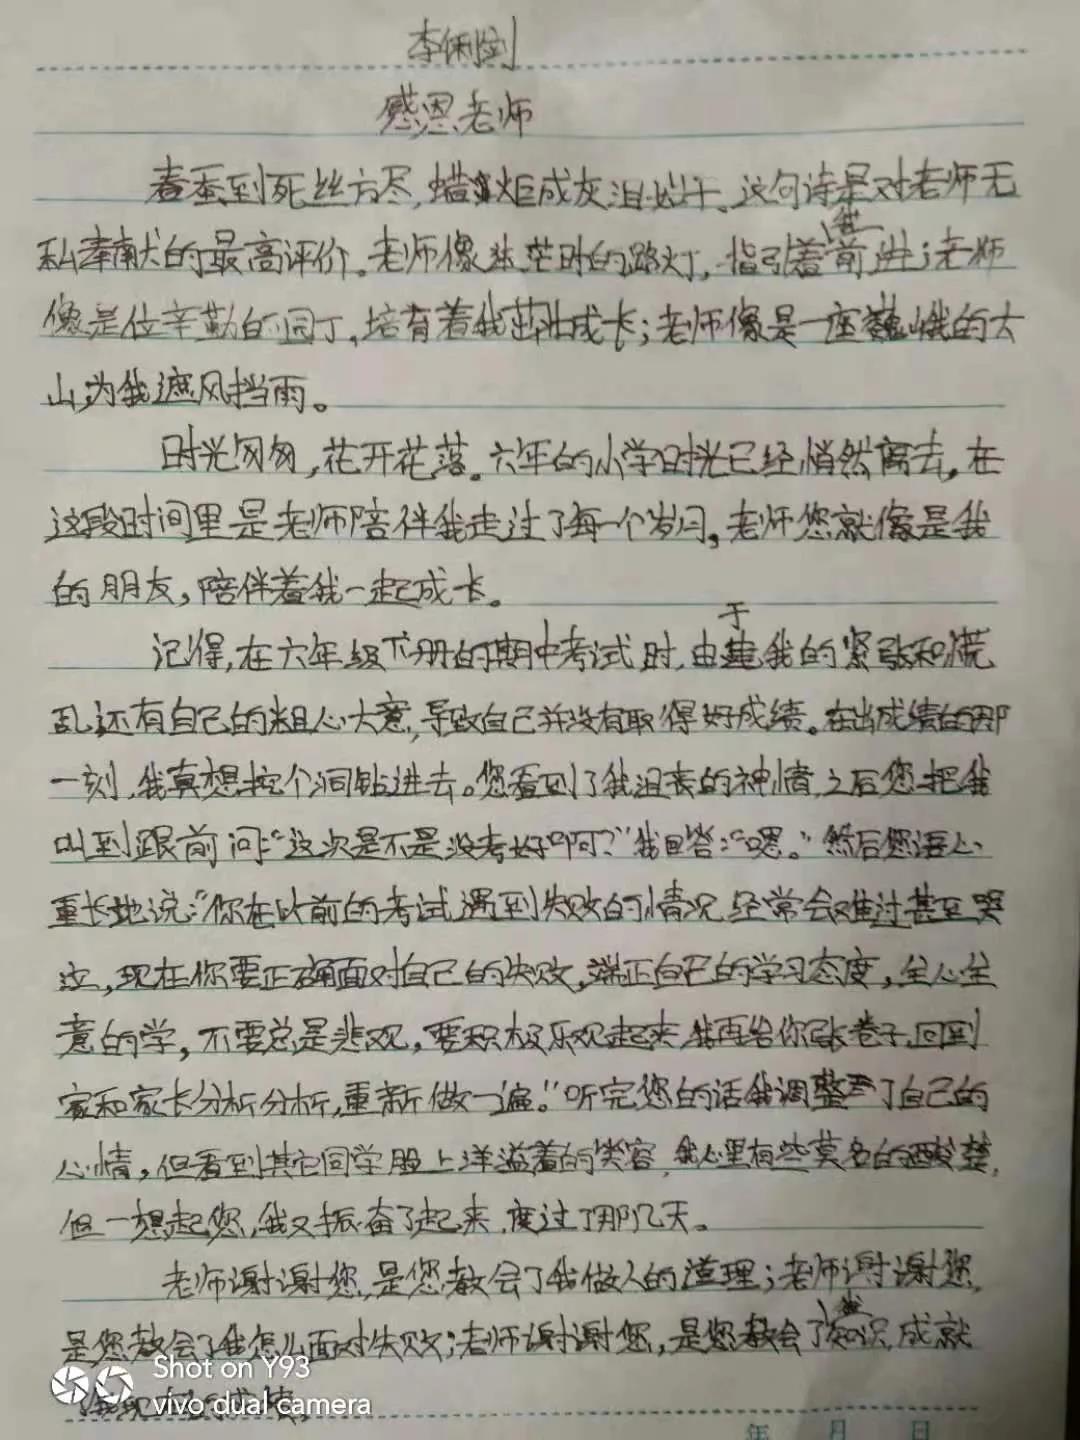 李俐剑
感恩老师
春蚕到死丝方尽,蜡炬成灰泪始干。这句诗是对老师无
私奉献的最高评价。老师像迷茫时的路灯,指引着我前进;老师
像是位辛勤的园丁,培育着我茁壮成长;老师像是一座巍峨的大
山,为我遮风挡雨。
时光匆匆,花开花落。六年的小学时光已经悄然离去,在
这段时间里是老师陪伴我走过了每一个岁月,老师您就像是我
的朋友,陪伴着我一起成长。
记得,在六年级下册的期中考试时,由于我的紧张和慌
乱还有自己的粗心大意,导致自己并没有取得好成绩。在出成绩的那
一刻,我真想挖个洞钻进去。您看到了我沮丧的神情,之后您把我
叫到跟前问:“这次是不是没考好啊?”我回答:“嗯。”然后您语心
重长地说:“你在以前的考试遇到失败的情况经常会难过甚至哭
泣,现在你要正确面对自己的失败,端正自己的学习态度,全心全
意的学,不要总是悲观,要积极乐观起来,我再给你张卷子,回到
家和家长分析分析,重新做一遍。”听完您的话我调整了自己的
心情,但看到其它同学脸上洋溢着的笑容,我心里有些莫名的酸楚,
但一想起您,我又振奋了起来,度过了那几天。
老师谢谢您,是您教会了我做人的道理;老师谢谢您,
是您教会了我怎么面对失败;老师谢谢您,是您教会了我知识,成就
Shot on Y93
vivo dual camera
年 月 日